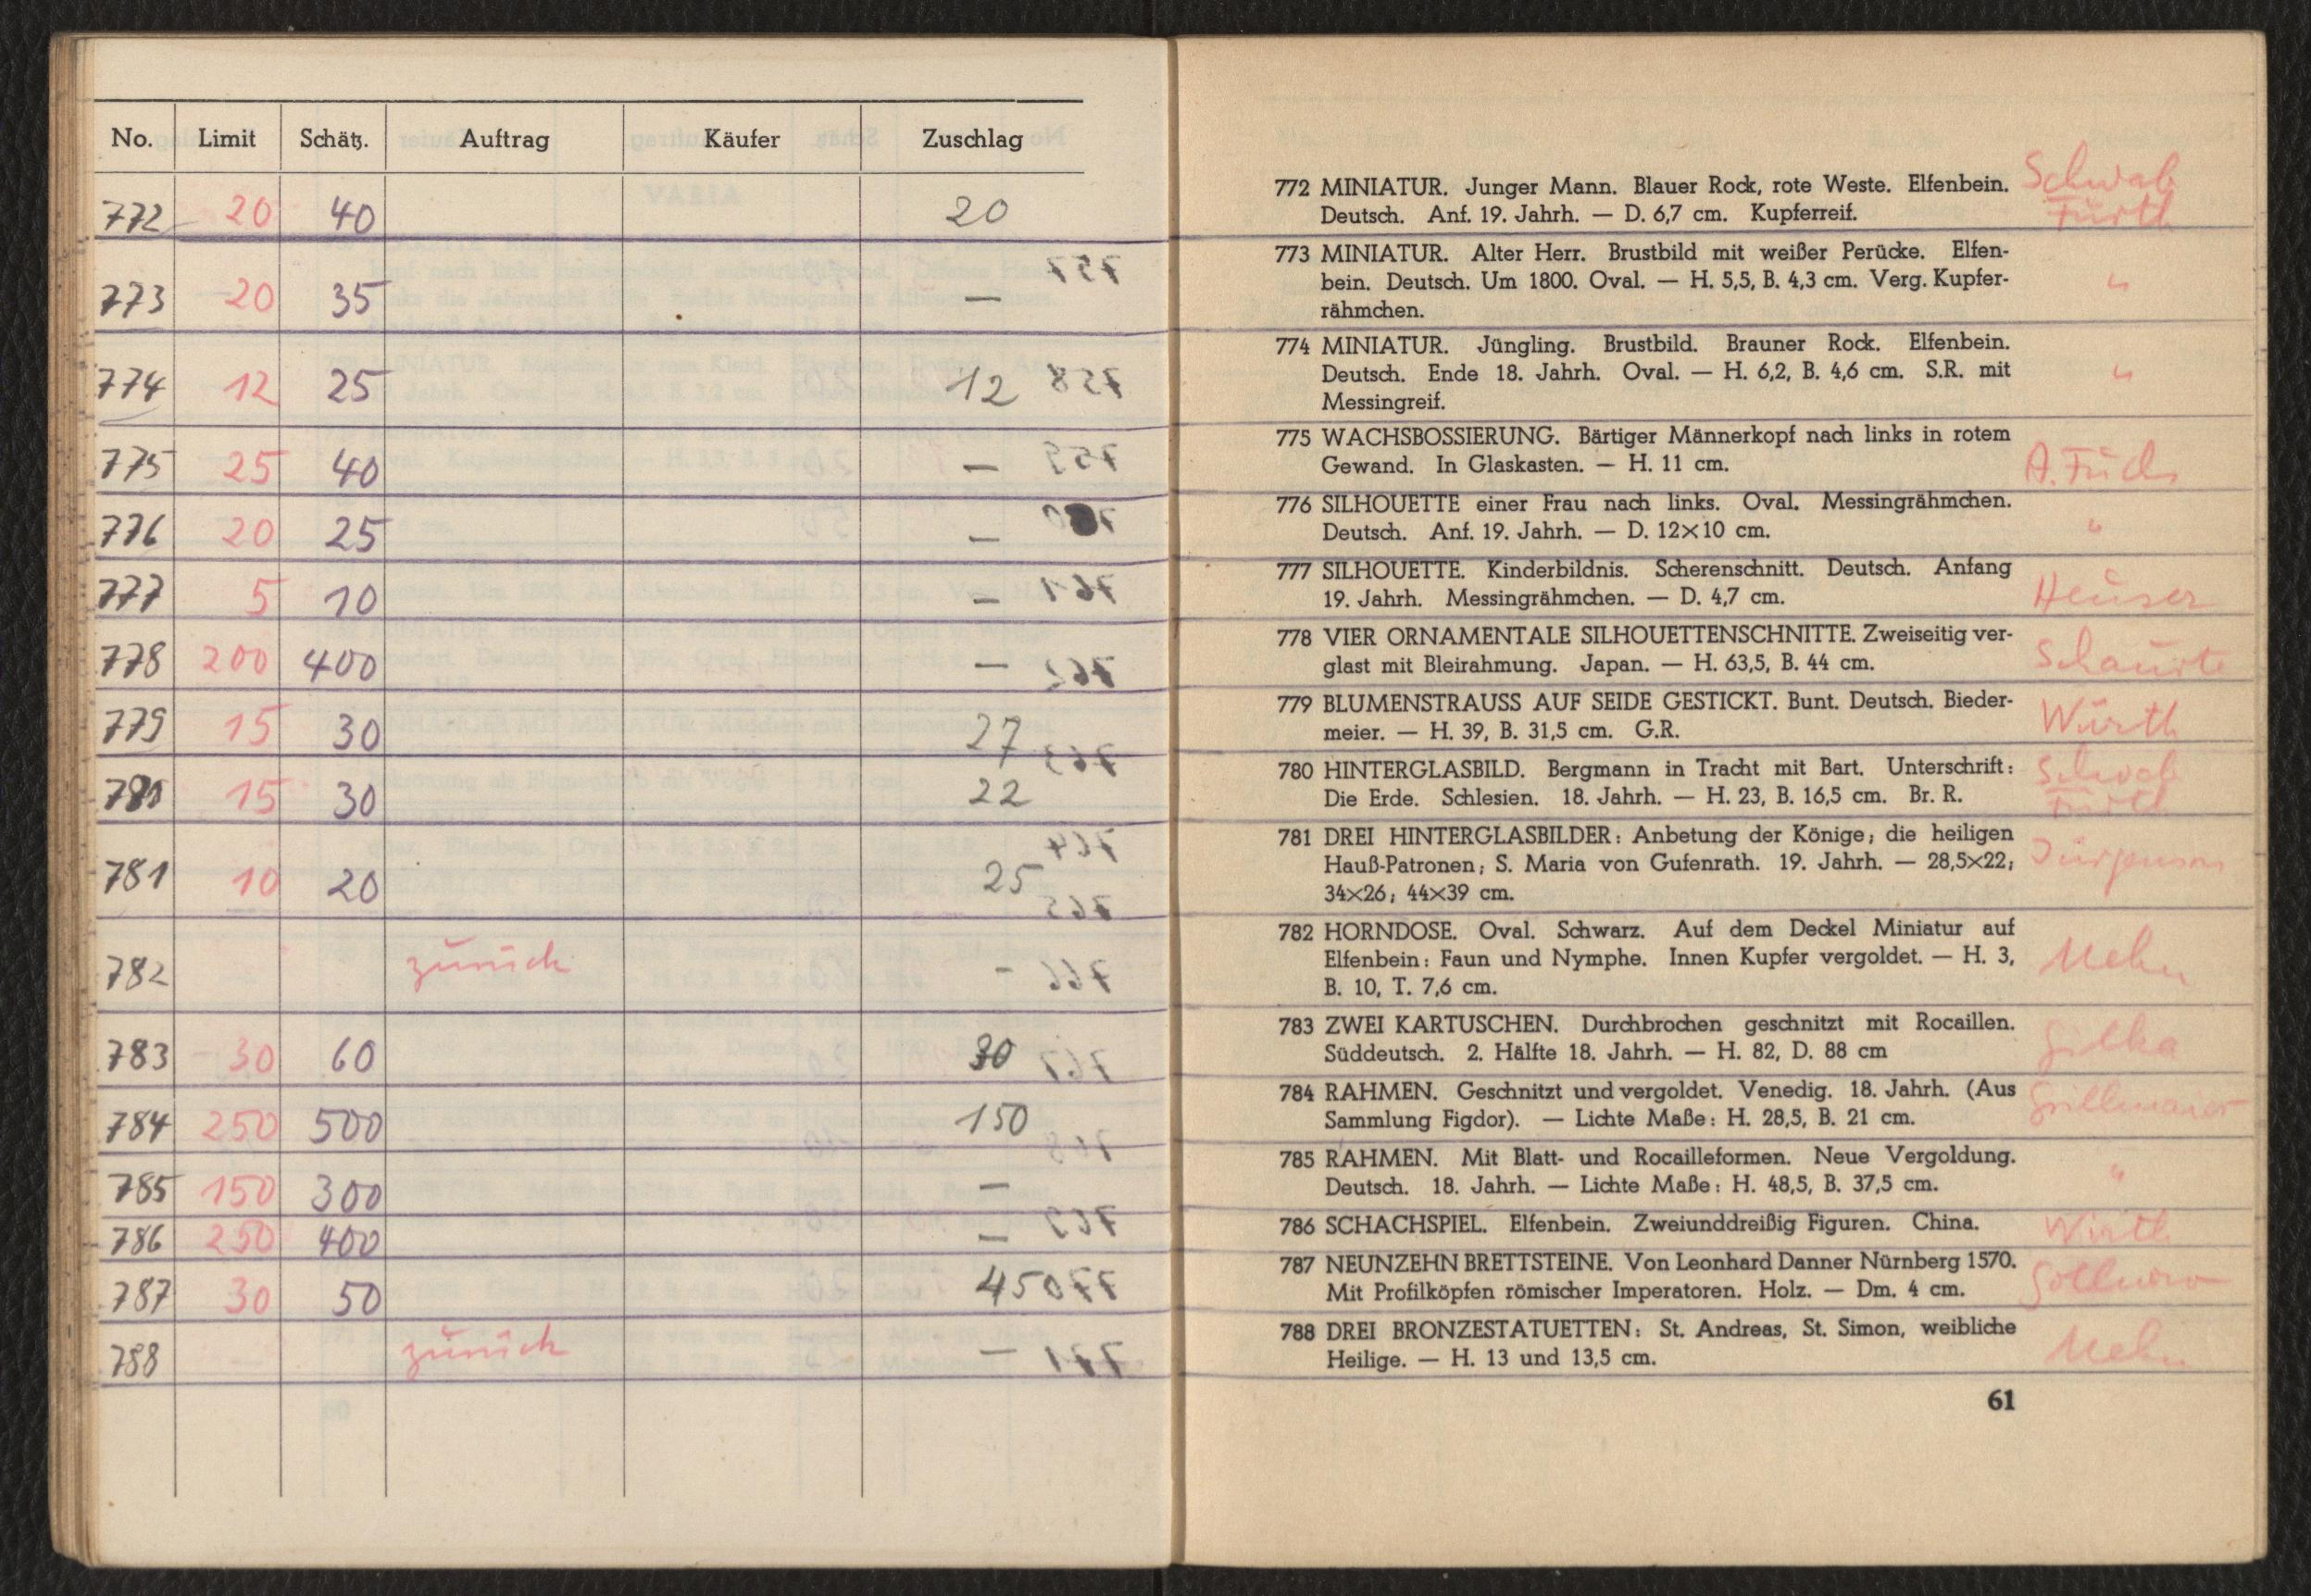 No. Limit Schätz. Auftrag Käufer Zuschlag
772 20 40 20
773 20 35 —
774 12 25 12
775 25 40 —
776 20 25 —
777 5 10 —
778 200 400 —
779 15 30 27
780 15 30 22
781 10 20 25
782 zurück -
783 30 60 30
784 250 500 150
785 150 300 —
786 250 400 —
787 30 50 450
788 zurück —
772 MINIATUR. Junger Mann. Blauer Rock, rote Weste. Elfenbein. Schwab
Deutsch. Anf. 19. Jahrh. — D. 6,7 cm. Kupferreif. Fürth
773 MINIATUR. Alter Herr. Brustbild mit weißer Perücke. Elfen-
bein. Deutsch. Um 1800. Oval. — H. 5,5, B. 4,3 cm. Verg. Kupfer- "
rähmchen.
774 MINIATUR. Jüngling. Brustbild. Brauner Rock. Elfenbein.
Deutsch. Ende 18. Jahrh. Oval. — H. 6,2, B. 4,6 cm. S.R. mit "
Messingreif.
775 WACHSBOSSIERUNG. Bärtiger Männerkopf nach links in rotem
Gewand. In Glaskasten. — H. 11 cm. A. Fuchs
776 SILHOUETTE einer Frau nach links. Oval. Messingrähmchen.
Deutsch. Anf. 19. Jahrh. — D. 12×10 cm. "
777 SILHOUETTE. Kinderbildnis. Scherenschnitt. Deutsch. Anfang
19. Jahrh. Messingrähmchen. — D. 4,7 cm. Heuser
778 VIER ORNAMENTALE SILHOUETTENSCHNITTE. Zweiseitig ver-
glast mit Bleirahmung. Japan. — H. 63,5, B. 44 cm. Schaurte
779 BLUMENSTRAUSS AUF SEIDE GESTICKT. Bunt. Deutsch. Bieder-
meier. — H. 39, B. 31,5 cm. G.R. Würth
780 HINTERGLASBILD. Bergmann in Tracht mit Bart. Unterschrift: Schwab
Die Erde. Schlesien. 18. Jahrh. — H. 23, B. 16,5 cm. Br. R. Fürth
781 DREI HINTERGLASBILDER: Anbetung der Könige; die heiligen
Hauß-Patronen; S. Maria von Gufenrath. 19. Jahrh. — 28,5×22;
34×26; 44×39 cm.
782 HORNDOSE. Oval. Schwarz. Auf dem Deckel Miniatur auf
Elfenbein: Faun und Nymphe. Innen Kupfer vergoldet. — H. 3,
B. 10, T. 7,6 cm.
783 ZWEI KARTUSCHEN. Durchbrochen geschnitzt mit Rocaillen.
Süddeutsch. 2. Hälfte 18. Jahrh. — H. 82, D. 88 cm Gilka
784 RAHMEN. Geschnitzt und vergoldet. Venedig. 18. Jahrh. (Aus
Sammlung Figdor). — Lichte Maße: H. 28,5, B. 21 cm.
785 RAHMEN. Mit Blatt- und Rocailleformen. Neue Vergoldung.
Deutsch. 18. Jahrh. — Lichte Maße: H. 48,5, B. 37,5 cm. "
786 SCHACHSPIEL. Elfenbein. Zweiunddreißig Figuren. China. Wirth
787 NEUNZEHN BRETTSTEINE. Von Leonhard Danner Nürnberg 1570.
Mit Profilköpfen römischer Imperatoren. Holz. — Dm. 4 cm.
788 DREI BRONZESTATUETTEN: St. Andreas, St. Simon, weibliche
Heilige. — H. 13 und 13,5 cm.
61